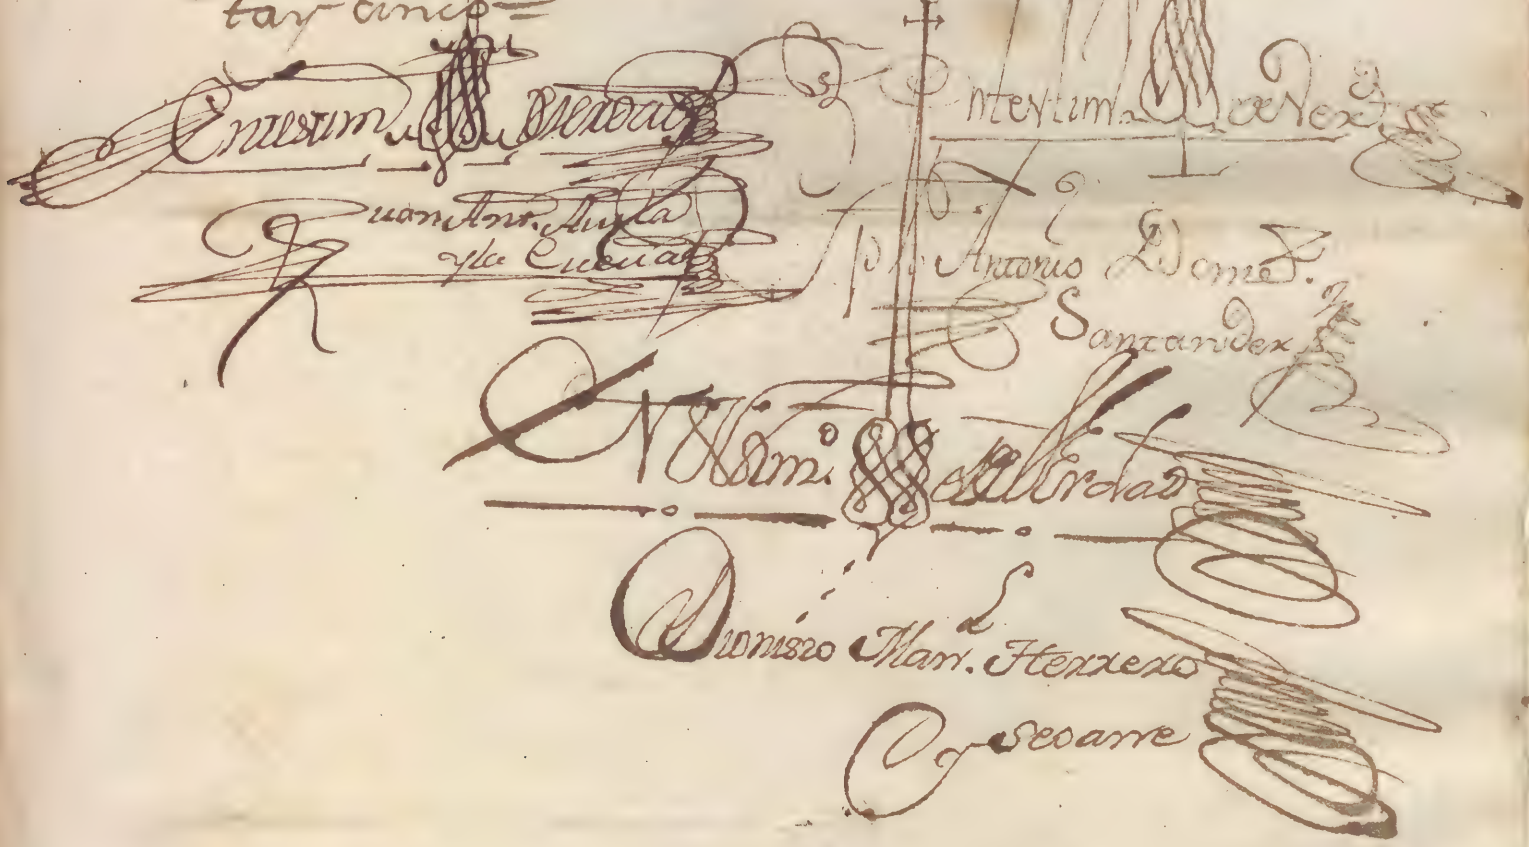 tay cinco=
En testim.o de Verdad
Juan Ant.o Avila
y la Cueva
En testim.o de Verd
Antonio Dom.
Santander
En testim.o de Verdad
Dionisio Man.l Herrero
y Seoane